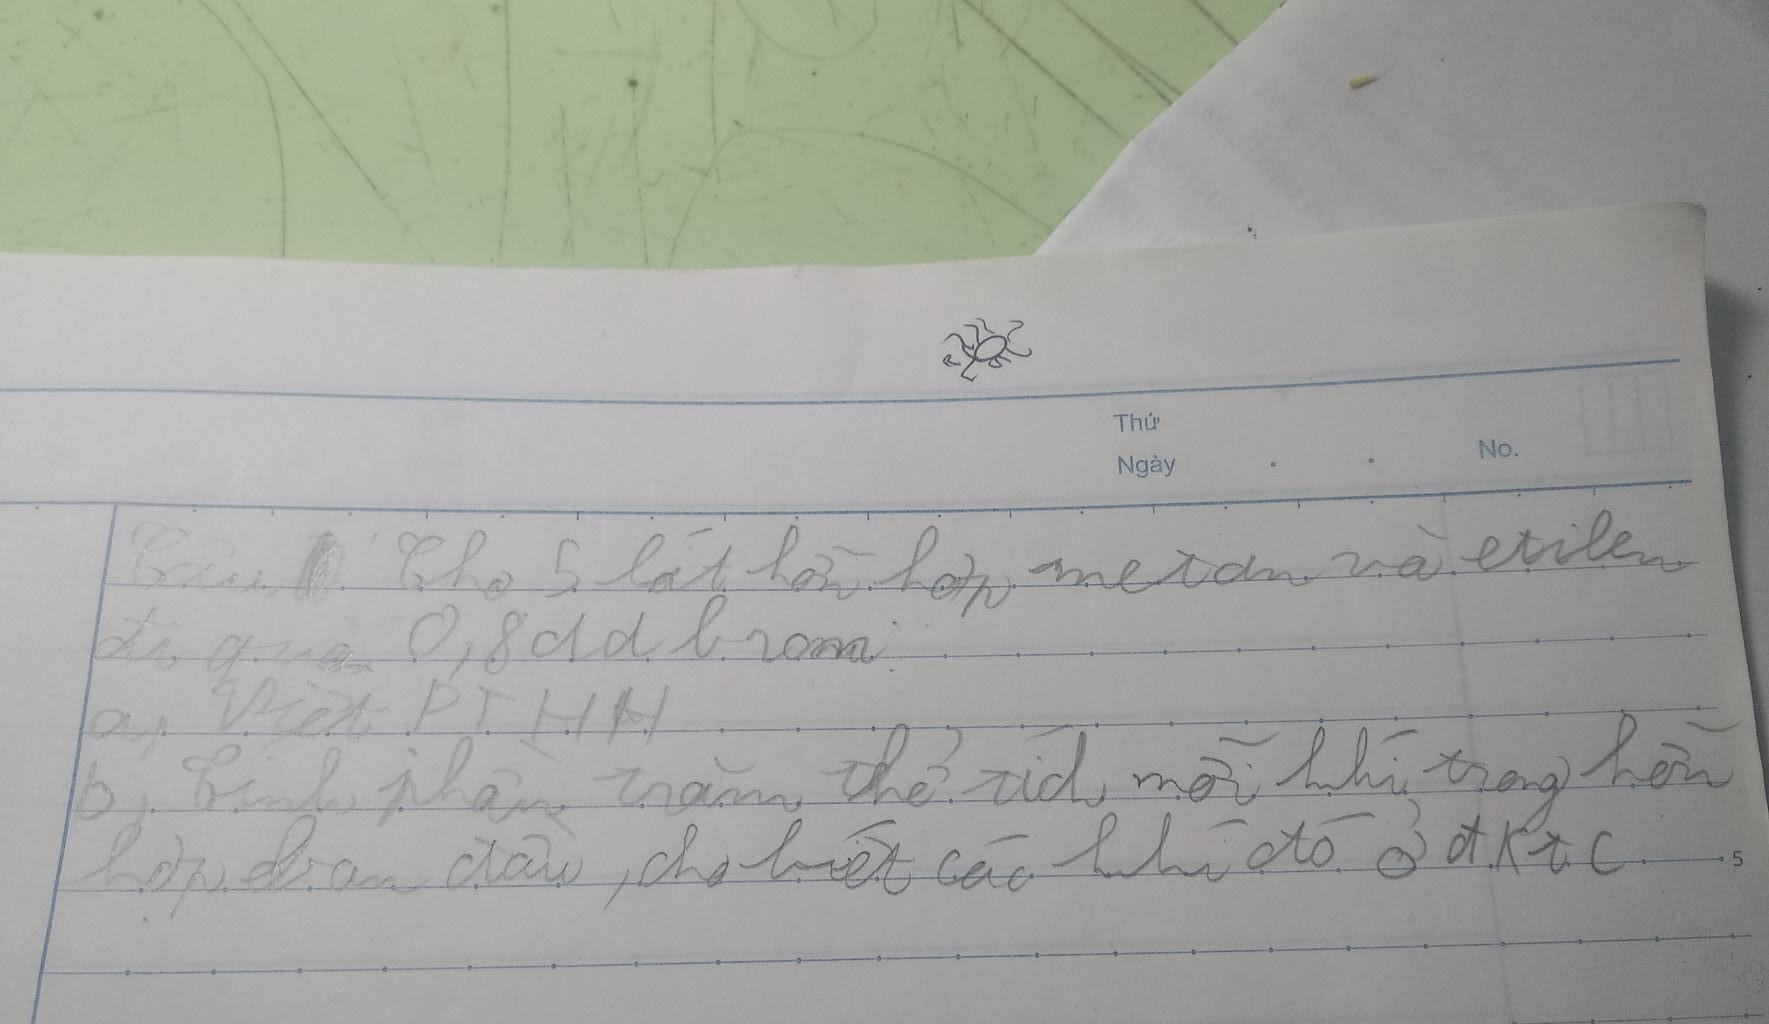 Thứ
Ngày
No.
Câu 1: Cho 5 lít hỗn hợp metan và etilen
đi qua 0,8 dd brom
a, Viết PTHH
b, Tính phần trăm thể tích mỗi khí trong hỗn
hợp ban đầu, cho biết các khí đó ở đktc
5